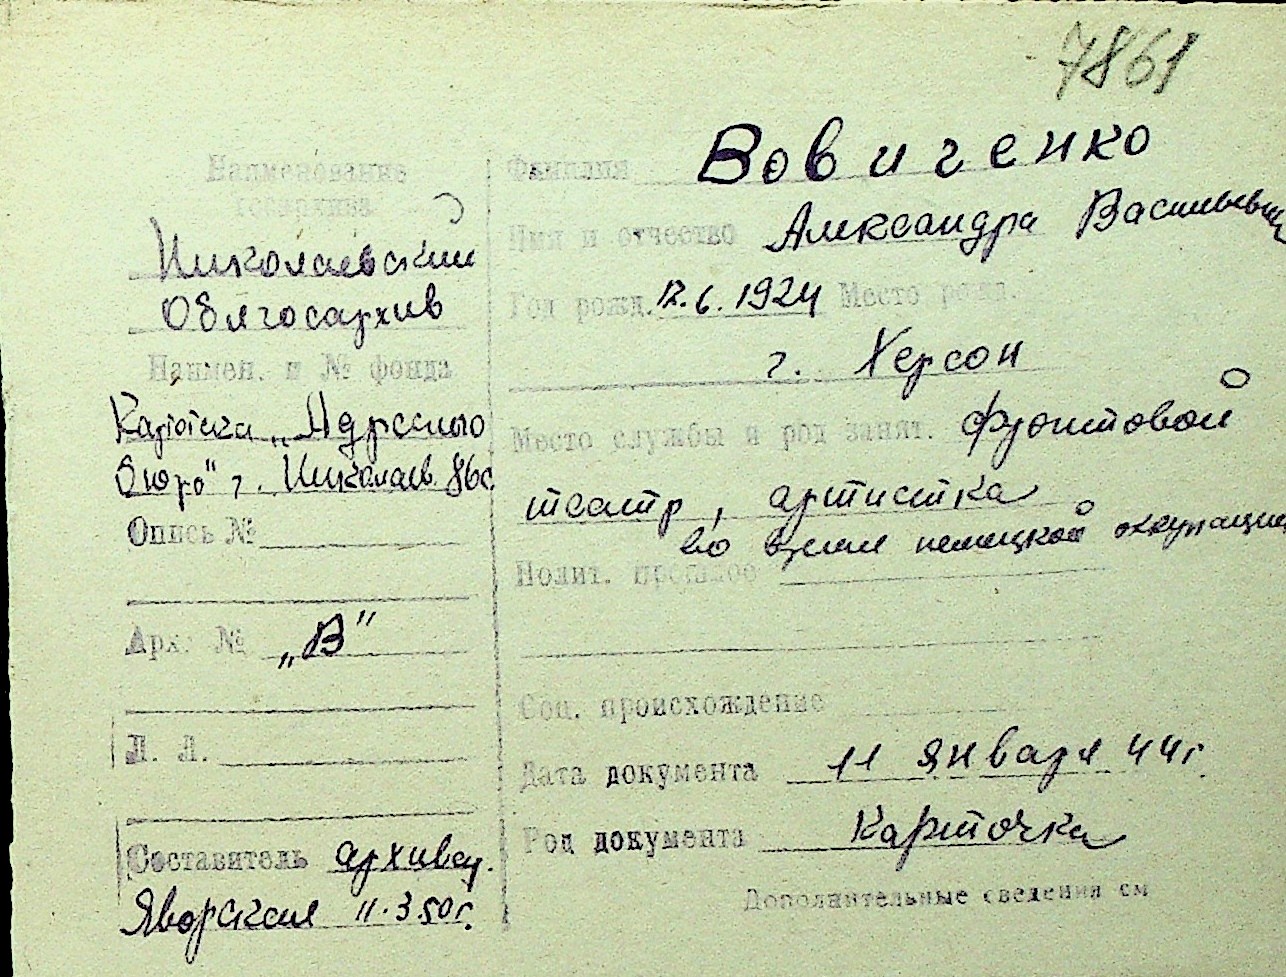 7861
Наименование
госархива
Николаевский
Облгосархив
Наимен. и № фонда
Картотека „Адресного
бюро" г. Николаев
Опись №
Арх. № „В"
Л. Л.
Составитель архивар.
Яворская 11.3.50г.
Фамилия Вовиченко
Имя и отчество Александра Васильевн
Год рожд. 12.6.1924 Место рожд.
г. Херсон
Место службы и род занят. фронтовой
театр, артистка
во время немецкой оккупации
Полит. прошлое
Соц. происхождение
Дата документа 11 января 44г.
Род документа карточка
Дополнительные сведения см